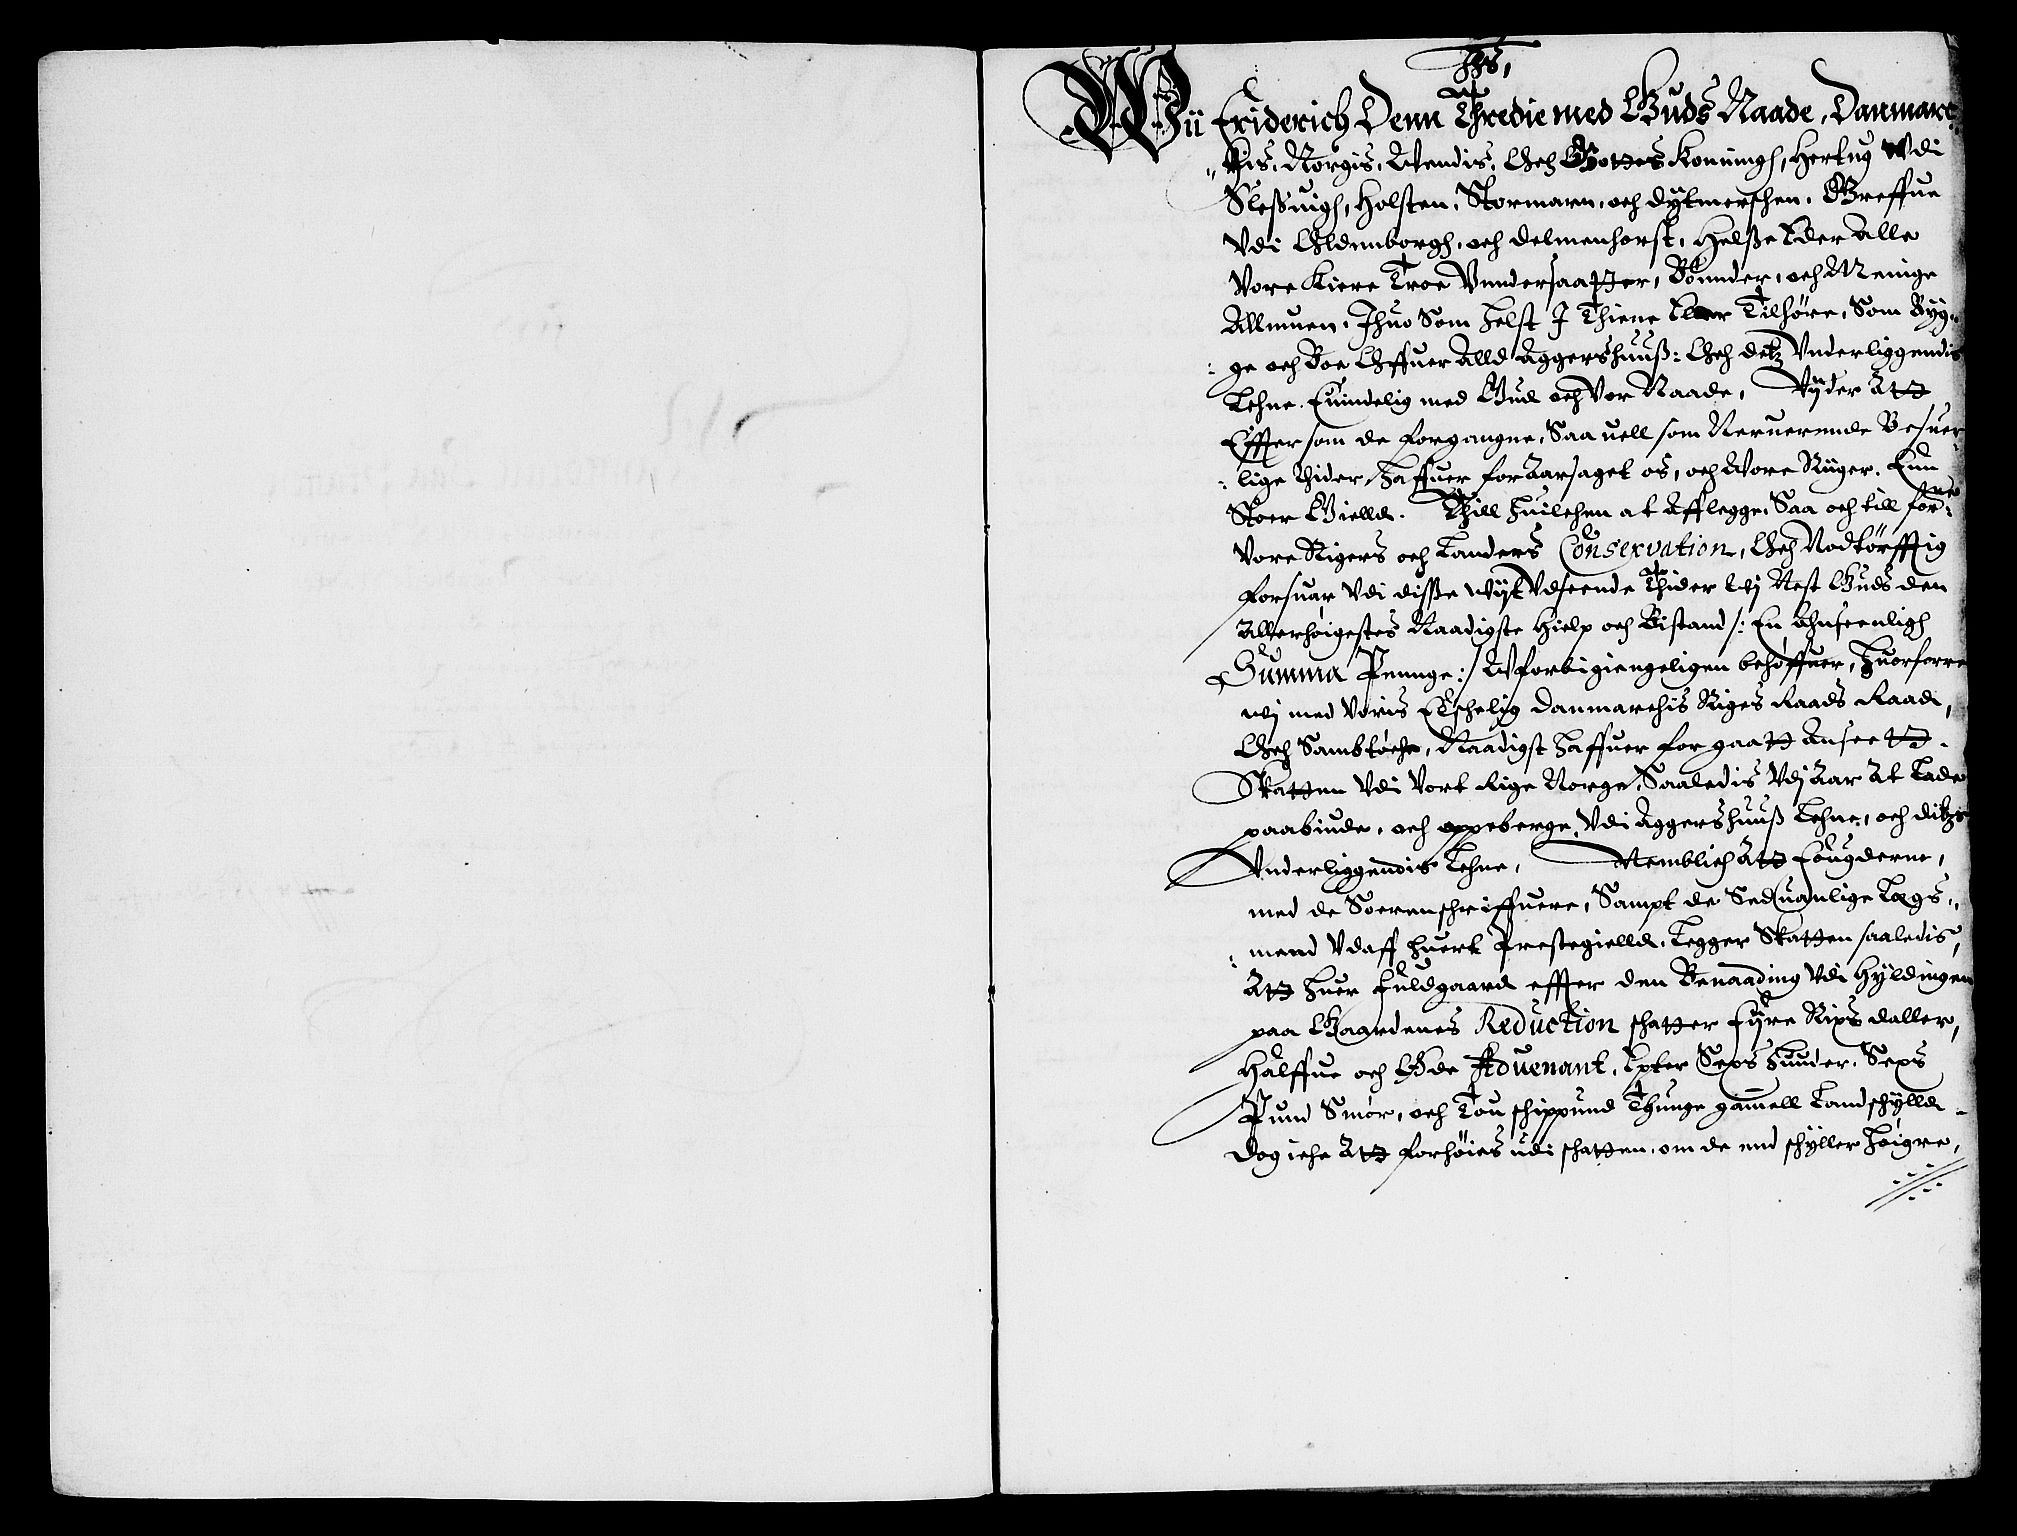 IHS,
Wii Friderich Denn Thredie med Guds Naade, Danmarc¬
kis, Norgis, Wendis, Och Gottes Konningh, Hertug Wdi
Slessuigh, Holsten, Stormarn, och dytmerschen, Greffue
Vdi Oldennborgh, och delmenhorst, Helsse Eder Alle
Vore Kiere Troe Vnndersaatter, Bønnder, och Meinige
Allmuen, Ihuo Som helst I Thiene Eller Tilhøre, Som Byg¬
ge och Boe Offuer Alld Aggershuuss: Och detz Vnderliggendis
Lehne. Euindelig med Gud och Vor Naade, Vyder Att
Effter som de forgangne, Saa uell som Neruerende Besuer¬
lige Thider, haffuer foraarsaget os, och Vore Riiger. Enn
Stoer Gielld. Thill huilchen at Afflegge, Saa och till for:ne
Vore Rigers och Landers Conservation, Och Nodtørfftig
forsuar Vdi disse wiit Vdseende Thider Wj Nest Guds den
Allerhøigestes Naadigste Hielp och Bistand /: En Ahnseenligh
Summa Penge :/ Wforbigiengeligen behøffuer, Huorforre
wj med Voris Elschelig Danmarchis Riges Raads Raad,
Och Sambtøche, Naadigst haffuer for gaatt Anseett
Skatten Vdi Vort Rige Norge, Saaledis Vdj Aar At Lade
paabiude, och oppeberge, Vdi Aggershuuss Lehne, och ditz
Vnderliggendis Lehne, Nemblich Att Fougderne,
med de Soerenschriffuere, Sampt de Seduanlige Lægs¬
mend Vdaff huert Prestegielld, Legger Skatten saaledis,
Att huer Fuldgaard effter den Benaading Vdi Hyldingen
paa Gaardenes Reduction schatter Fyre Rixs daller,
Halffue och Øde Aduenant, Epter Sexs Hunder, Sexs
Pund Smør, och Tou schippund Thunge gamell Landschylld
Dog iche Att forhøies udi schatten, om de end schyller høigre,